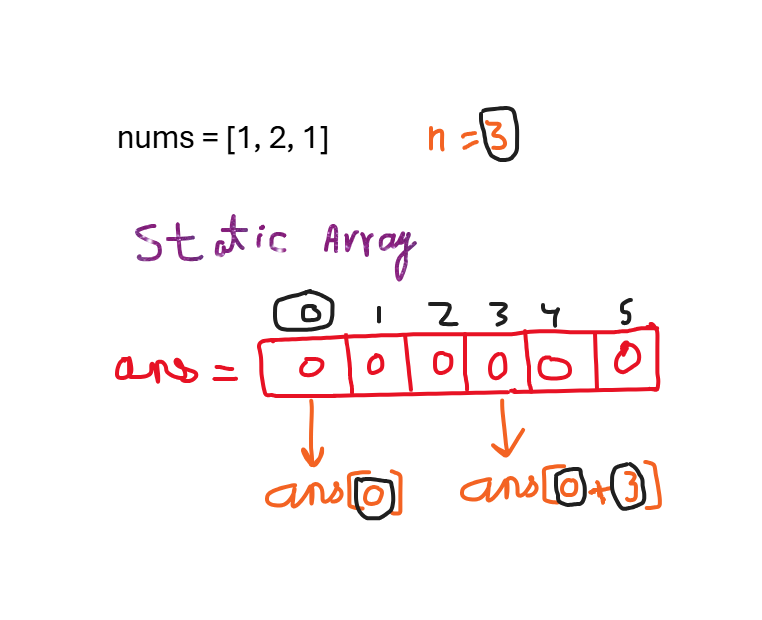 nums = [1, 2, 1] n = 3
Static Array
0 1 2 3 4 5
ans = 0 0 0 0 0 0
ans[0] ans[0+3]